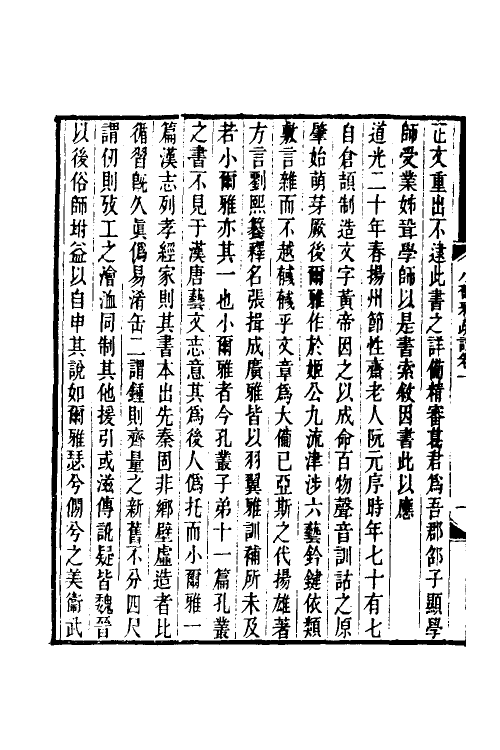 正文重出不逮此書之詳備精審葛君爲吾郡郃子顯學
師受業姊聓學師以是書索敘因書此以應
道光二十年春揚州節性齋老人阮元序時年七十有七
自倉頡制造文字黃帝因之以成命百物聲音訓詁之原
肇始萌芽厥後爾雅作於姬公九流津涉六藝鈐鍵依類
敷言雜而不越銊銊乎文章爲大備已亞斯之代揚雄著
方言劉熙纂釋名張揖成廣雅皆以羽翼雅訓補所未及
若小爾雅亦其一也小爾雅者今孔叢子弟十一篇孔叢
之書不見于漢唐藝文志意其爲後人僞托而小爾雅一
篇漢志列孝經家則其書本出先秦固非鄉壁虛造者比
循習旣久眞僞易淆缶二謂鍾則齊量之新舊不分四尺
謂仞則攷工之澮洫同制其他援引或滋傳訛疑皆魏晉
以後俗師坿益以自申其說如爾雅瑟兮僩兮之美衞武
小爾雅疏證卷一
一